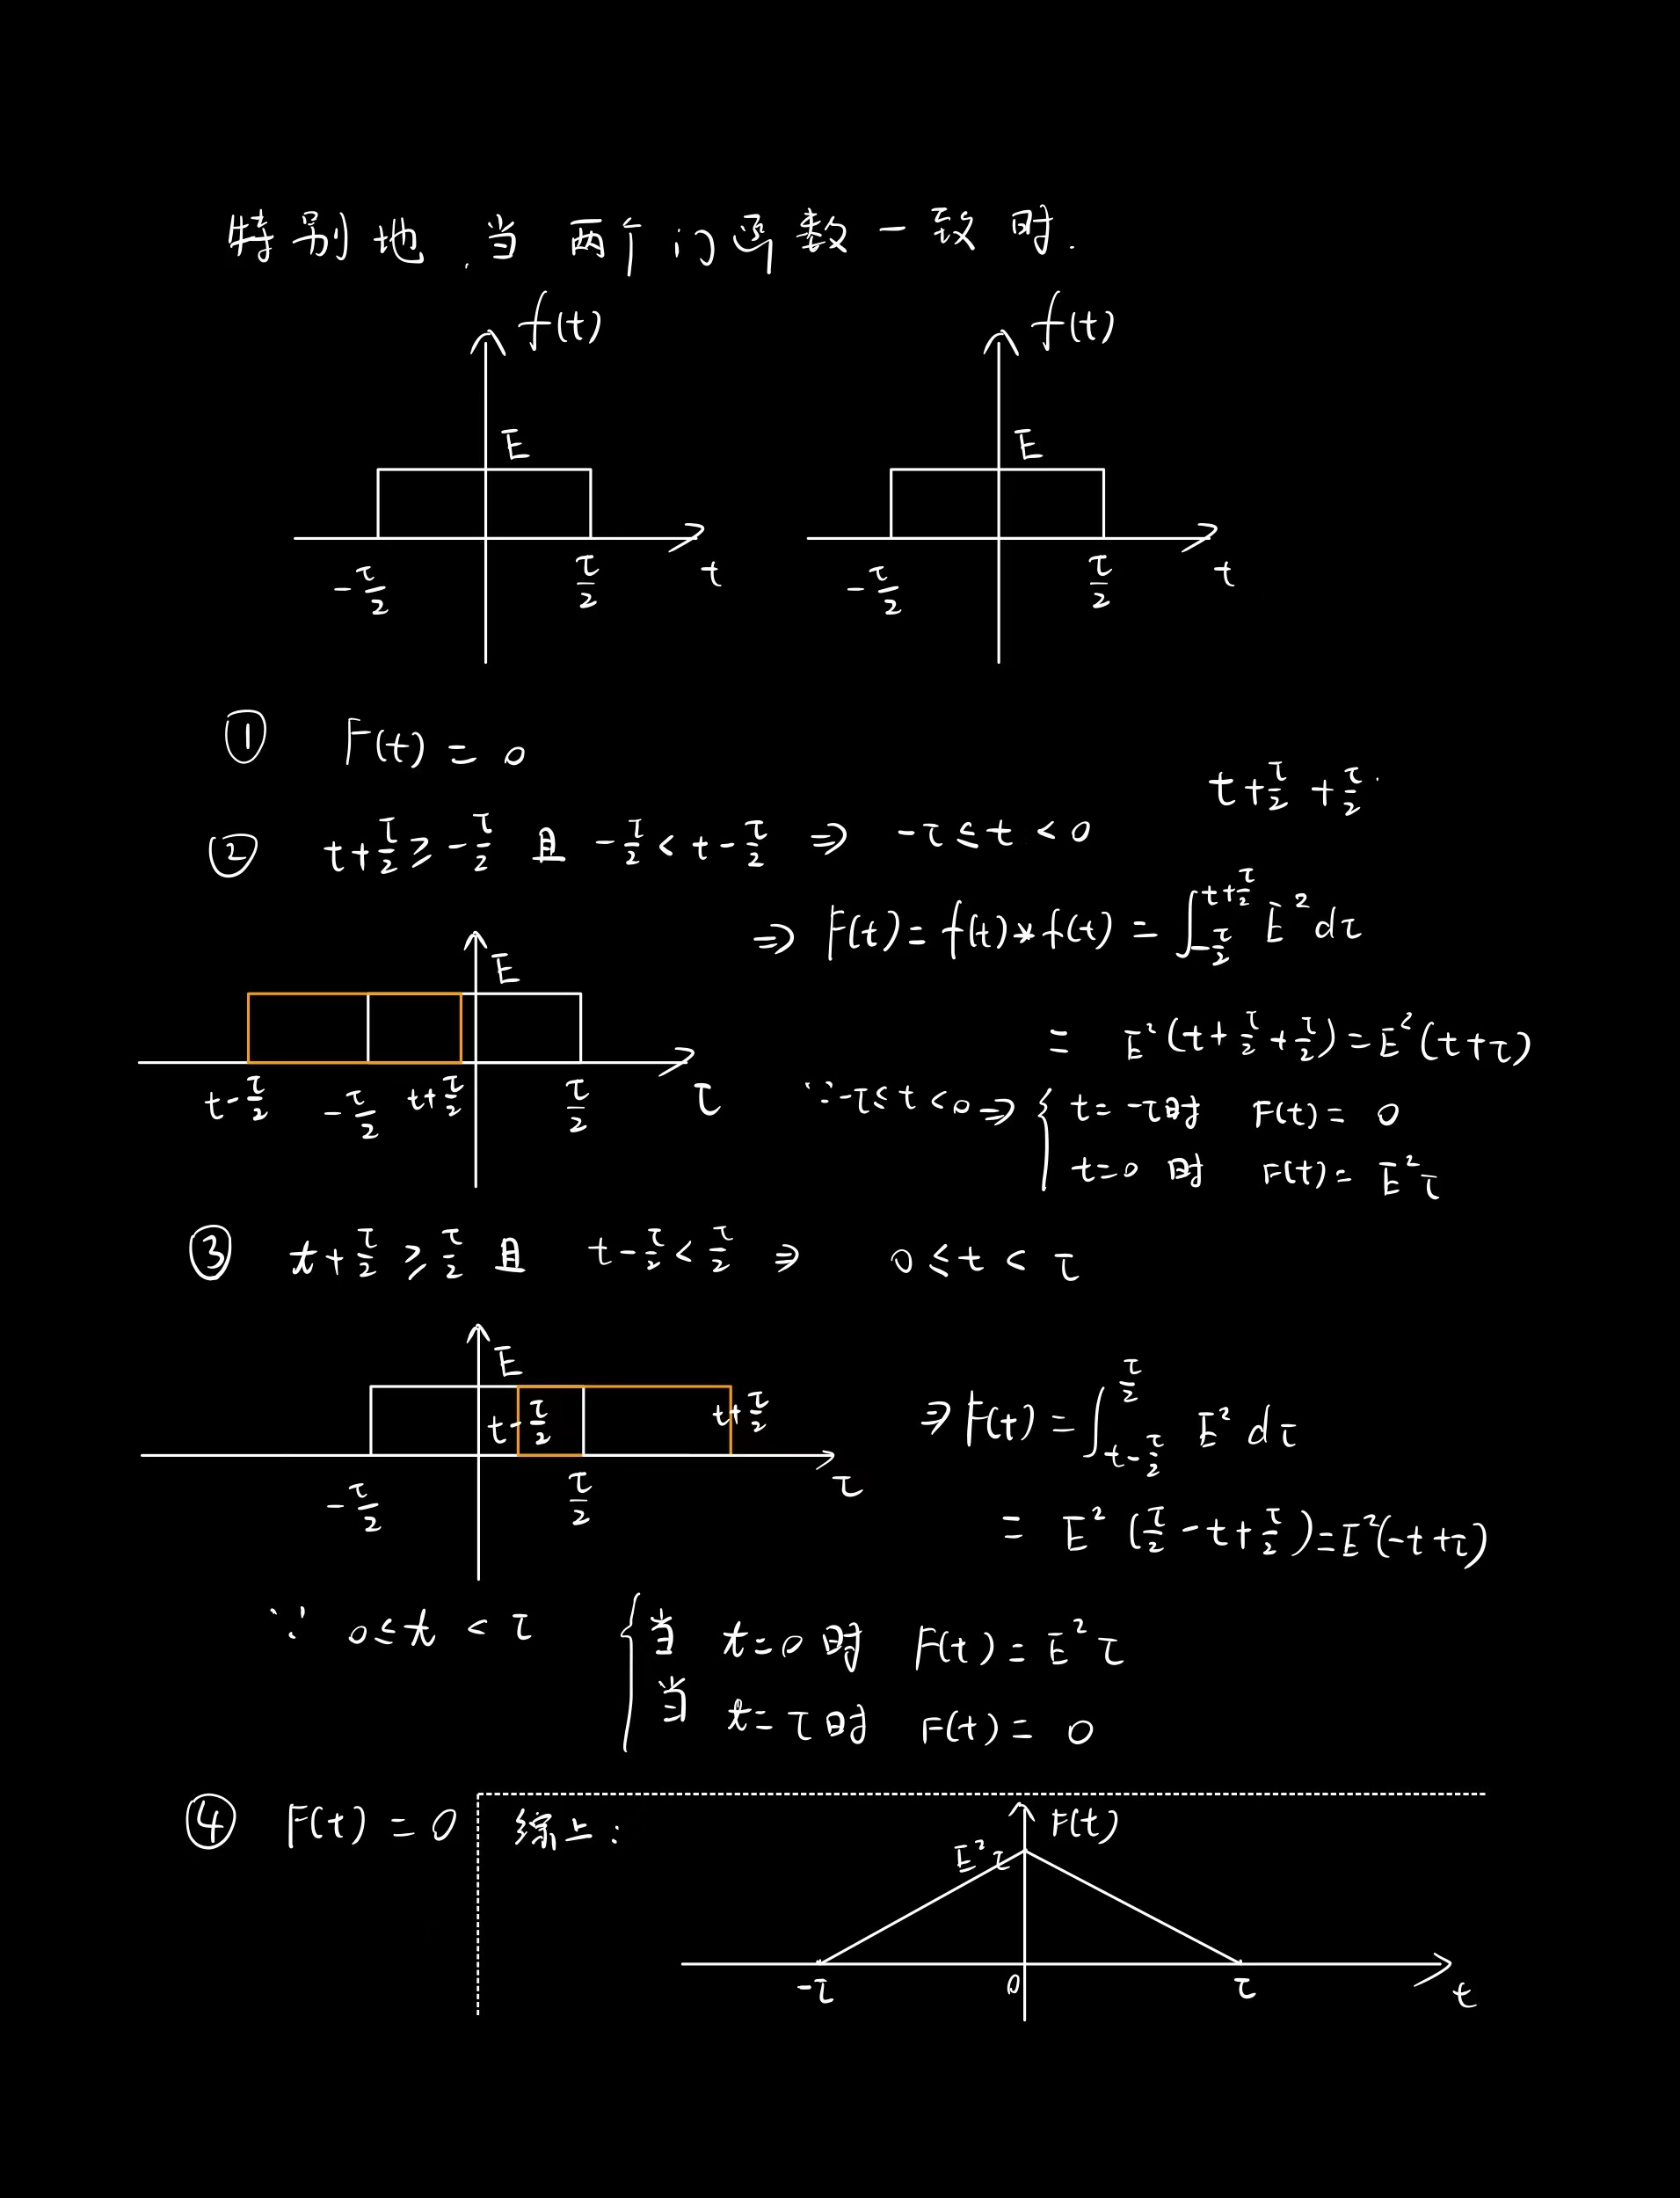 特别地,当两个门函数一致时.
f(t) f(t)
E E
-τ/2 τ/2 t -τ/2 τ/2 t
① F(t) = 0
t+τ/2 +τ/2
② t+τ/2 ≥ -τ/2 且 -τ/2 < t-τ/2 ⇒ -τ ≤ t < 0
⇒ F(t) = f(t)*f(t) = ∫_{-τ/2}^{t+τ/2} E² dτ
E
= E²(t+τ/2+τ/2) = E²(t+τ)
t-τ/2 -τ/2 t+τ/2 τ/2 τ
∵ -τ ≤ t < 0 ⇒ { t = -τ时 F(t) = 0
t=0 时 F(t) = E²τ
③ t+τ/2 ≥ τ/2 且 t-τ/2 < τ/2 ⇒ 0 ≤ t < τ
E
t-τ/2 t+τ/2
⇒ F(t) = ∫_{t-τ/2}^{τ/2} E² dτ
-τ/2 τ/2 τ
= E²(τ/2-t+τ/2) = E²(-t+τ)
∵ 0 ≤ t < τ { 当 t=0 时 F(t) = E²τ
当 t=τ时 F(t) = 0
④ F(t) = 0
综上:
F(t)
E²τ
-τ 0 τ t